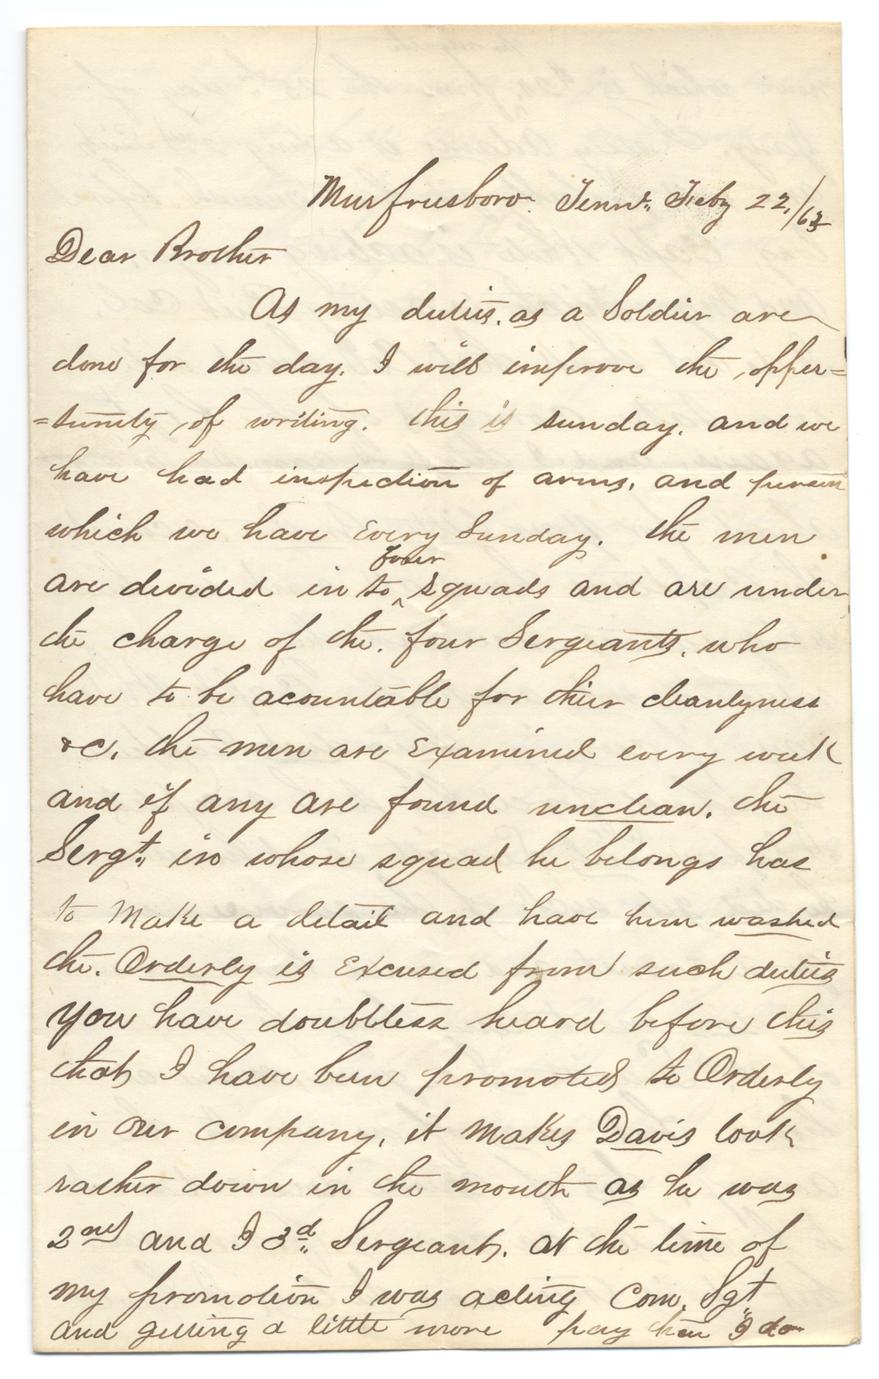 Murfreesboro. Tenn. Feby 22,/63
Dear Brother
As my duties, as a Soldier are
done for the day. I will improve the, opper=
=tunity, of writing. this is sunday. and we
have had inspection of arms, and person
which we have Every Sunday. the men
are devided into four squads and are under
the charge of the. four Sergeants. who
have to be acountable for thier cleanlyness
&c. the men are Examined every week
and if any are found unclean. the
Sergt. in whose squad he belongs has
to Make a detail and have him washed
the. Orderly is Excused from such duties
You have doubtless heard before this
that I have been promoted to Orderly
in our company, it Makes Davis look
rather down in the mouth as he was
2nd and I 3d Sergeant. at the time of
my promotion I was acting Com. Sgt
and getting a little more pay than I do